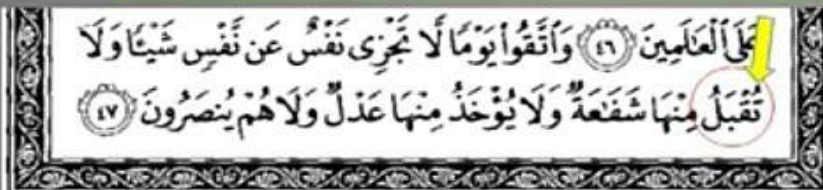 عَلَى ٱلْعَٰلَمِينَ ٤٦ وَٱتَّقُواْ يَوْمًا لَّا تَجْزِى نَفْسٌ عَن نَّفْسٍ شَيْـًٔا وَلَا
تُقْبَلُ مِنْهَا شَفَٰعَةٌ وَلَا يُؤْخَذُ مِنْهَا عَدْلٌ وَلَا هُمْ يُنصَرُونَ ٤٧